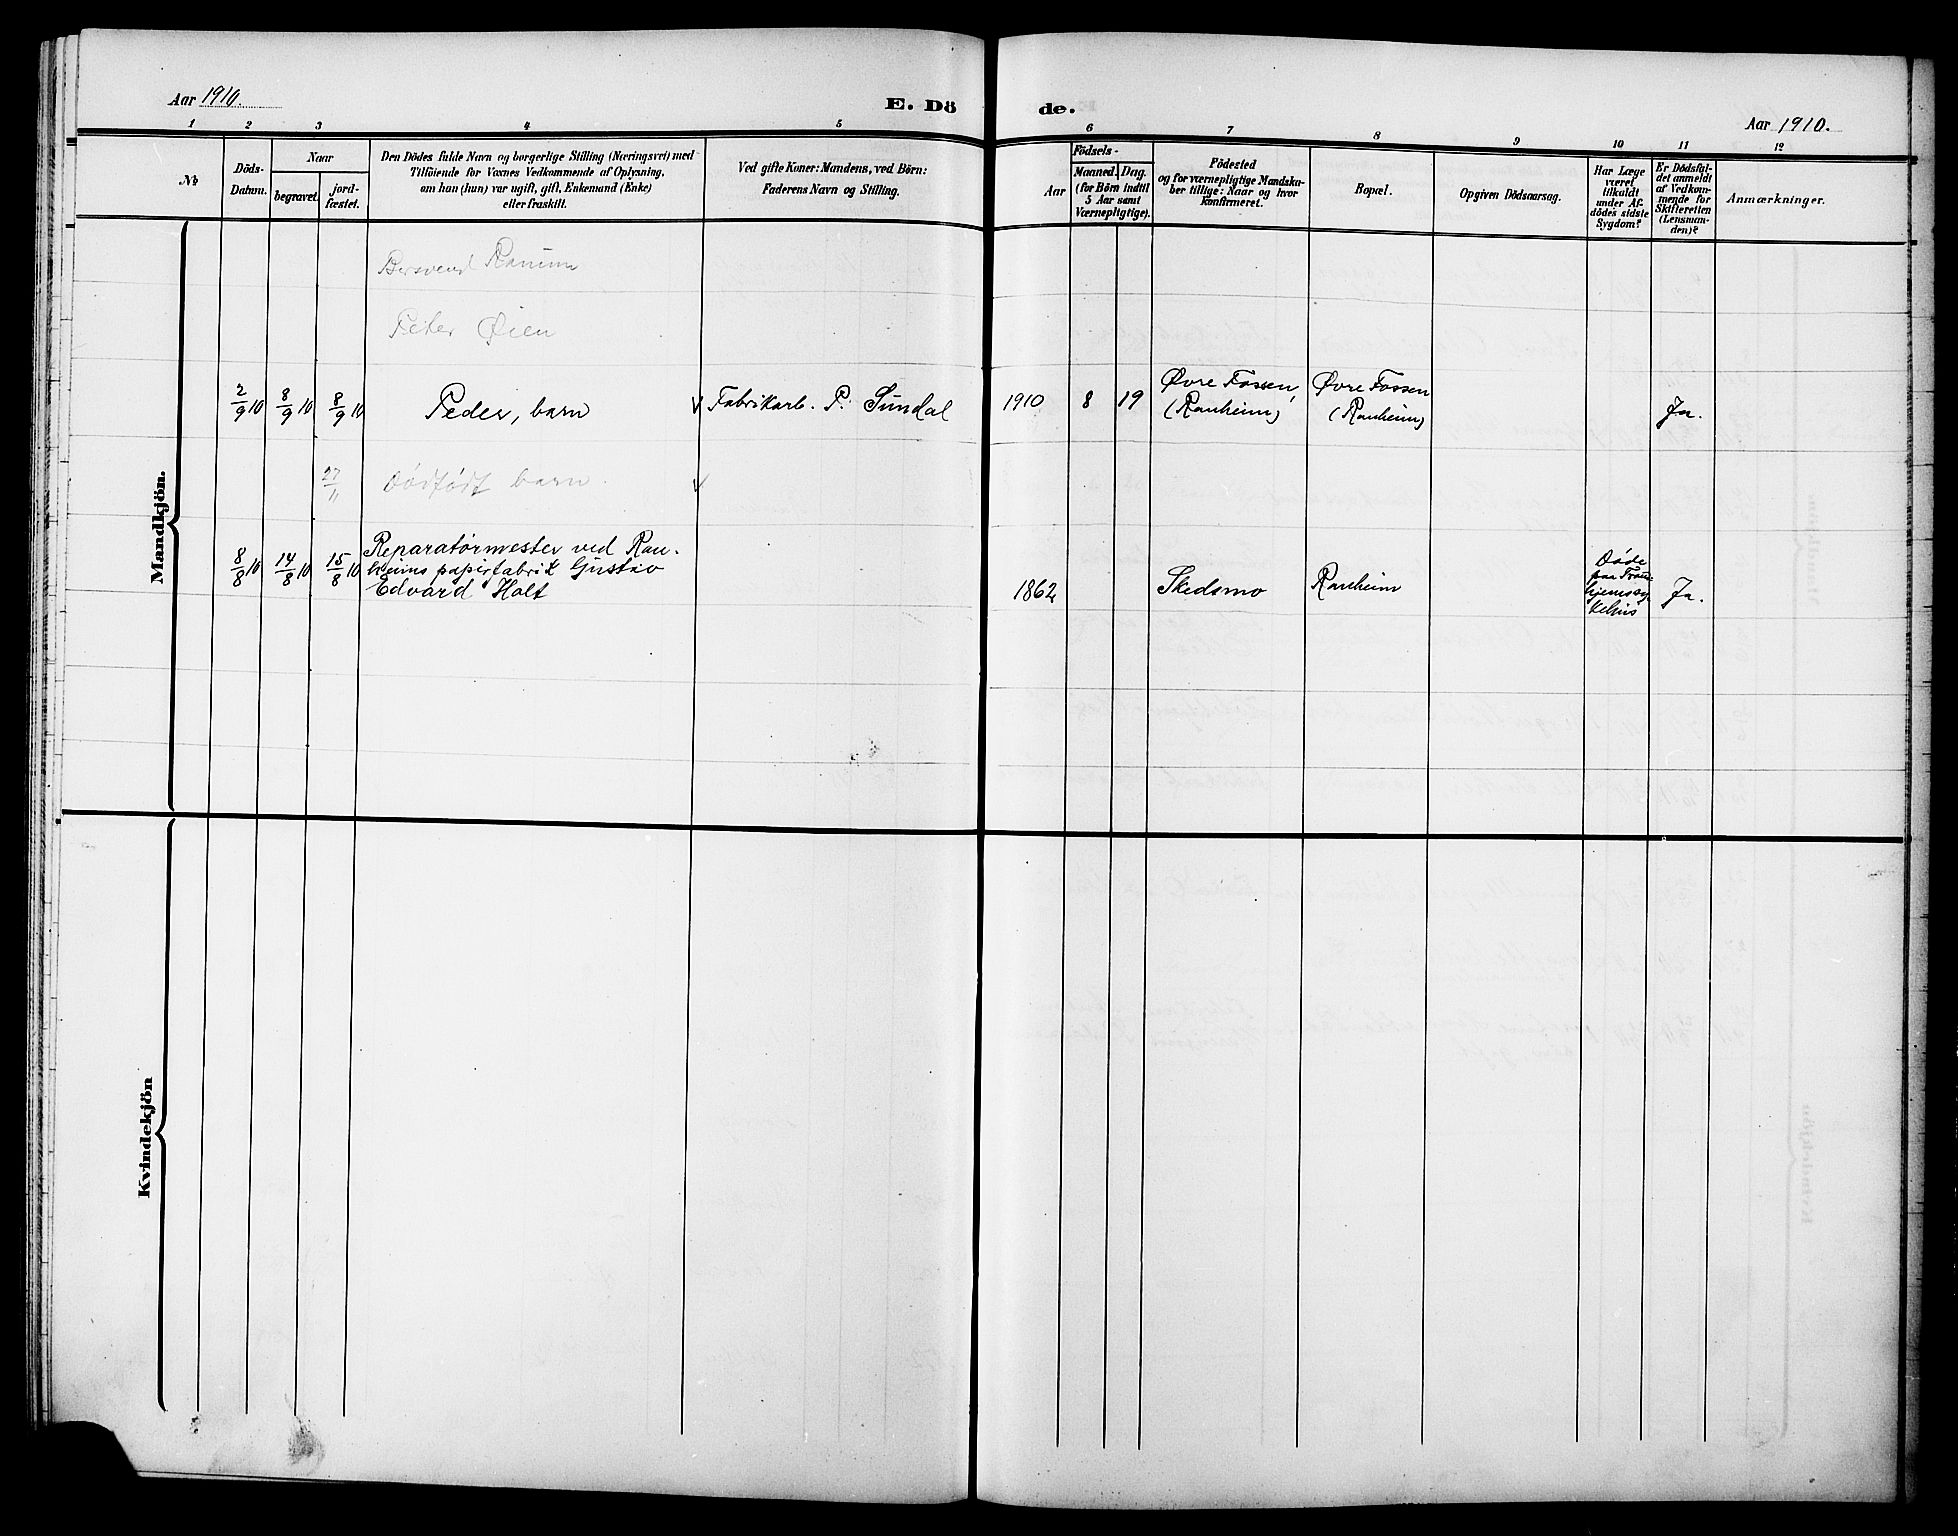 Aar 1910.
E. Dö
de.
Aar 1910.
1 2 3 4 5 6 7 8 9 10 11 12
No
Döds-
Datum.
Naar
begravet.
jord-
fæstet.
Den Dödes fulde Navn og borgerlige Stilling (Næringsvei) med
Tilföiende for Voxnes Vedkommende af Oplysning,
om han (hun) var ugift, gift, Enkemand (Enke)
eller fraskilt.
Ved gifte Koner: Mandens, ved Börn:
Faderens Navn og Stilling.
Födsels-
Aar
Maaned.
Dag.
(for Börn indtil
5 Aar samt
Værnepligtige).
Födested
og for værnepligtige Mandska-
ber tillige: Naar og hvor
konfirmeret.
Bopæl.
Opgiven Dödsaarsag.
Har Læge
været
tilkaldt
under Af-
dödes sidste
Sygdom?
Er Dödsfal-
det anmeldt
af Vedkom-
mende for
Skifteretten
(Lensman-
den)?
Anmærkninger.
Mandkjön.
Bersvend Ranum
Peter Øien
2/9 10 8/9 10 8/9 10 Peder, barn Fabrikarb. P. Sundal 1910 8 19 Øvre Fossen, (Ranheim) Øvre Fossen (Ranheim) Ja.
27/11 Dødfødt barn
8/8 10 14/8 10 15/8 10 Reparatørmester ved Ran-
heims papirfabrik Gustav
Edvard Holt
1862 Skedsmo Ranheim
Døde
paa Tron-
hjemssy-
kehus
Ja.
Kvindekjön